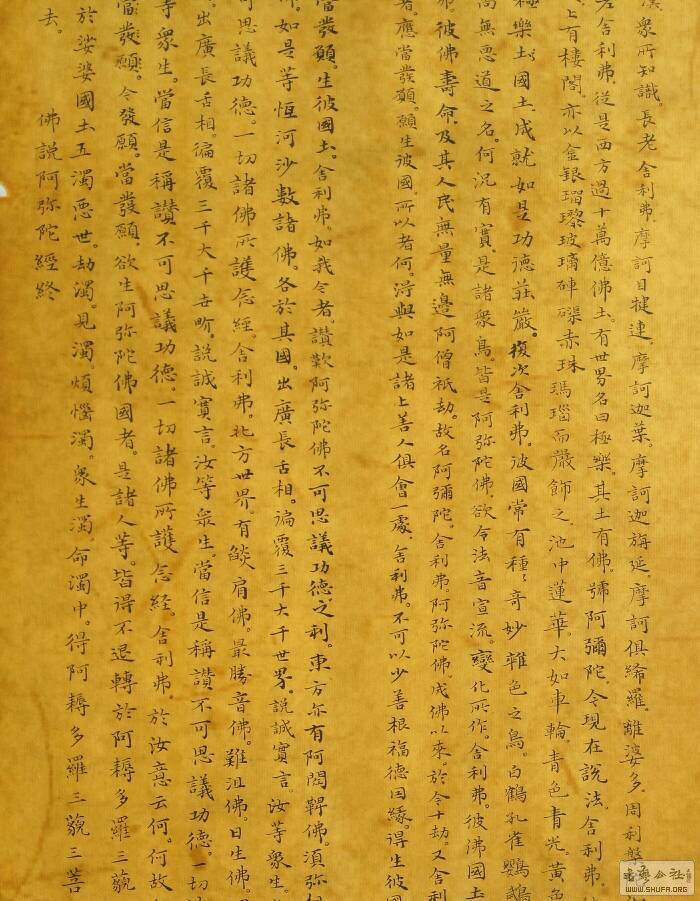 眾所知識。長老舍利弗。摩訶目揵連。摩訶迦葉。摩訶迦旃延。摩訶俱絺羅。離婆多。周利
老舍利弗。從是西方過十萬億佛土。有世界名曰極樂。其土有佛。號阿彌陀。今現在說法。舍利弗。
上有樓閣。亦以金銀瑠瓈玻瓈硨磲赤珠瑪瑙而嚴飾之。池中蓮華。大如車輪。青色青光。黃色
極樂國土。成就如是功德莊嚴。復次舍利弗。彼國常有種種奇妙雜色之鳥。白鶴孔雀鸚鵡
尚無惡道之名。何況有實。是諸眾鳥。皆是阿弥陀佛。欲令法音宣流。變化所作。舍利弗。彼佛國土
弗。彼佛壽命。及其人民無量無邊阿僧祇劫。故名阿彌陀。舍利弗。阿弥陀佛。成佛以來。於今十劫。又舍利
者。應當發願。願生彼國。所以者何。得與如是諸上善人俱會一處。舍利弗。不可以少善根福德因緣。得生彼國
當發願。生彼國土。舍利弗。如我今者。讚歎阿弥陀佛不可思議功德之利。東方亦有阿閦鞞佛。須弥
佛。如是等恆河沙數諸佛。各於其國。出廣長舌相。遍覆三千大千世界。說誠實言。汝等眾生。
可思議功德。一切諸佛所護念經。舍利弗。北方世界。有燄肩佛。最勝音佛。難沮佛。日生佛。
出廣長舌相。徧覆三千大千世界。說誠實言。汝等眾生。當信是稱讚不可思議功德。一切
等眾生。當信是稱讚不可思議功德。一切諸佛所護念經。舍利弗。於汝意云何。何故
當發願。今發願。當發願。欲生阿弥陀佛國者。是諸人等。皆得不退轉於阿耨多羅三藐
於娑婆國土五濁惡世。劫濁。見濁。煩惱濁。眾生濁。命濁中。得阿耨多羅三藐三菩
去。
佛說阿弥陀經終
書法公社
WWW.SHUFA.ORG